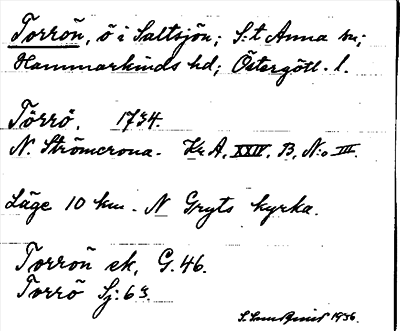 Torrön, ö i Saltsjön; S:t Anna sn;
Hammarkinds hd; Östergötl. l.
Törrö. 1734.
N. Strömcrona. Kr A. XXIV. B, N:o III.
Läge 10 km. N Gryts kyrka.
Torrön ek, G. 46.
Torrö Sj: 63
1936.